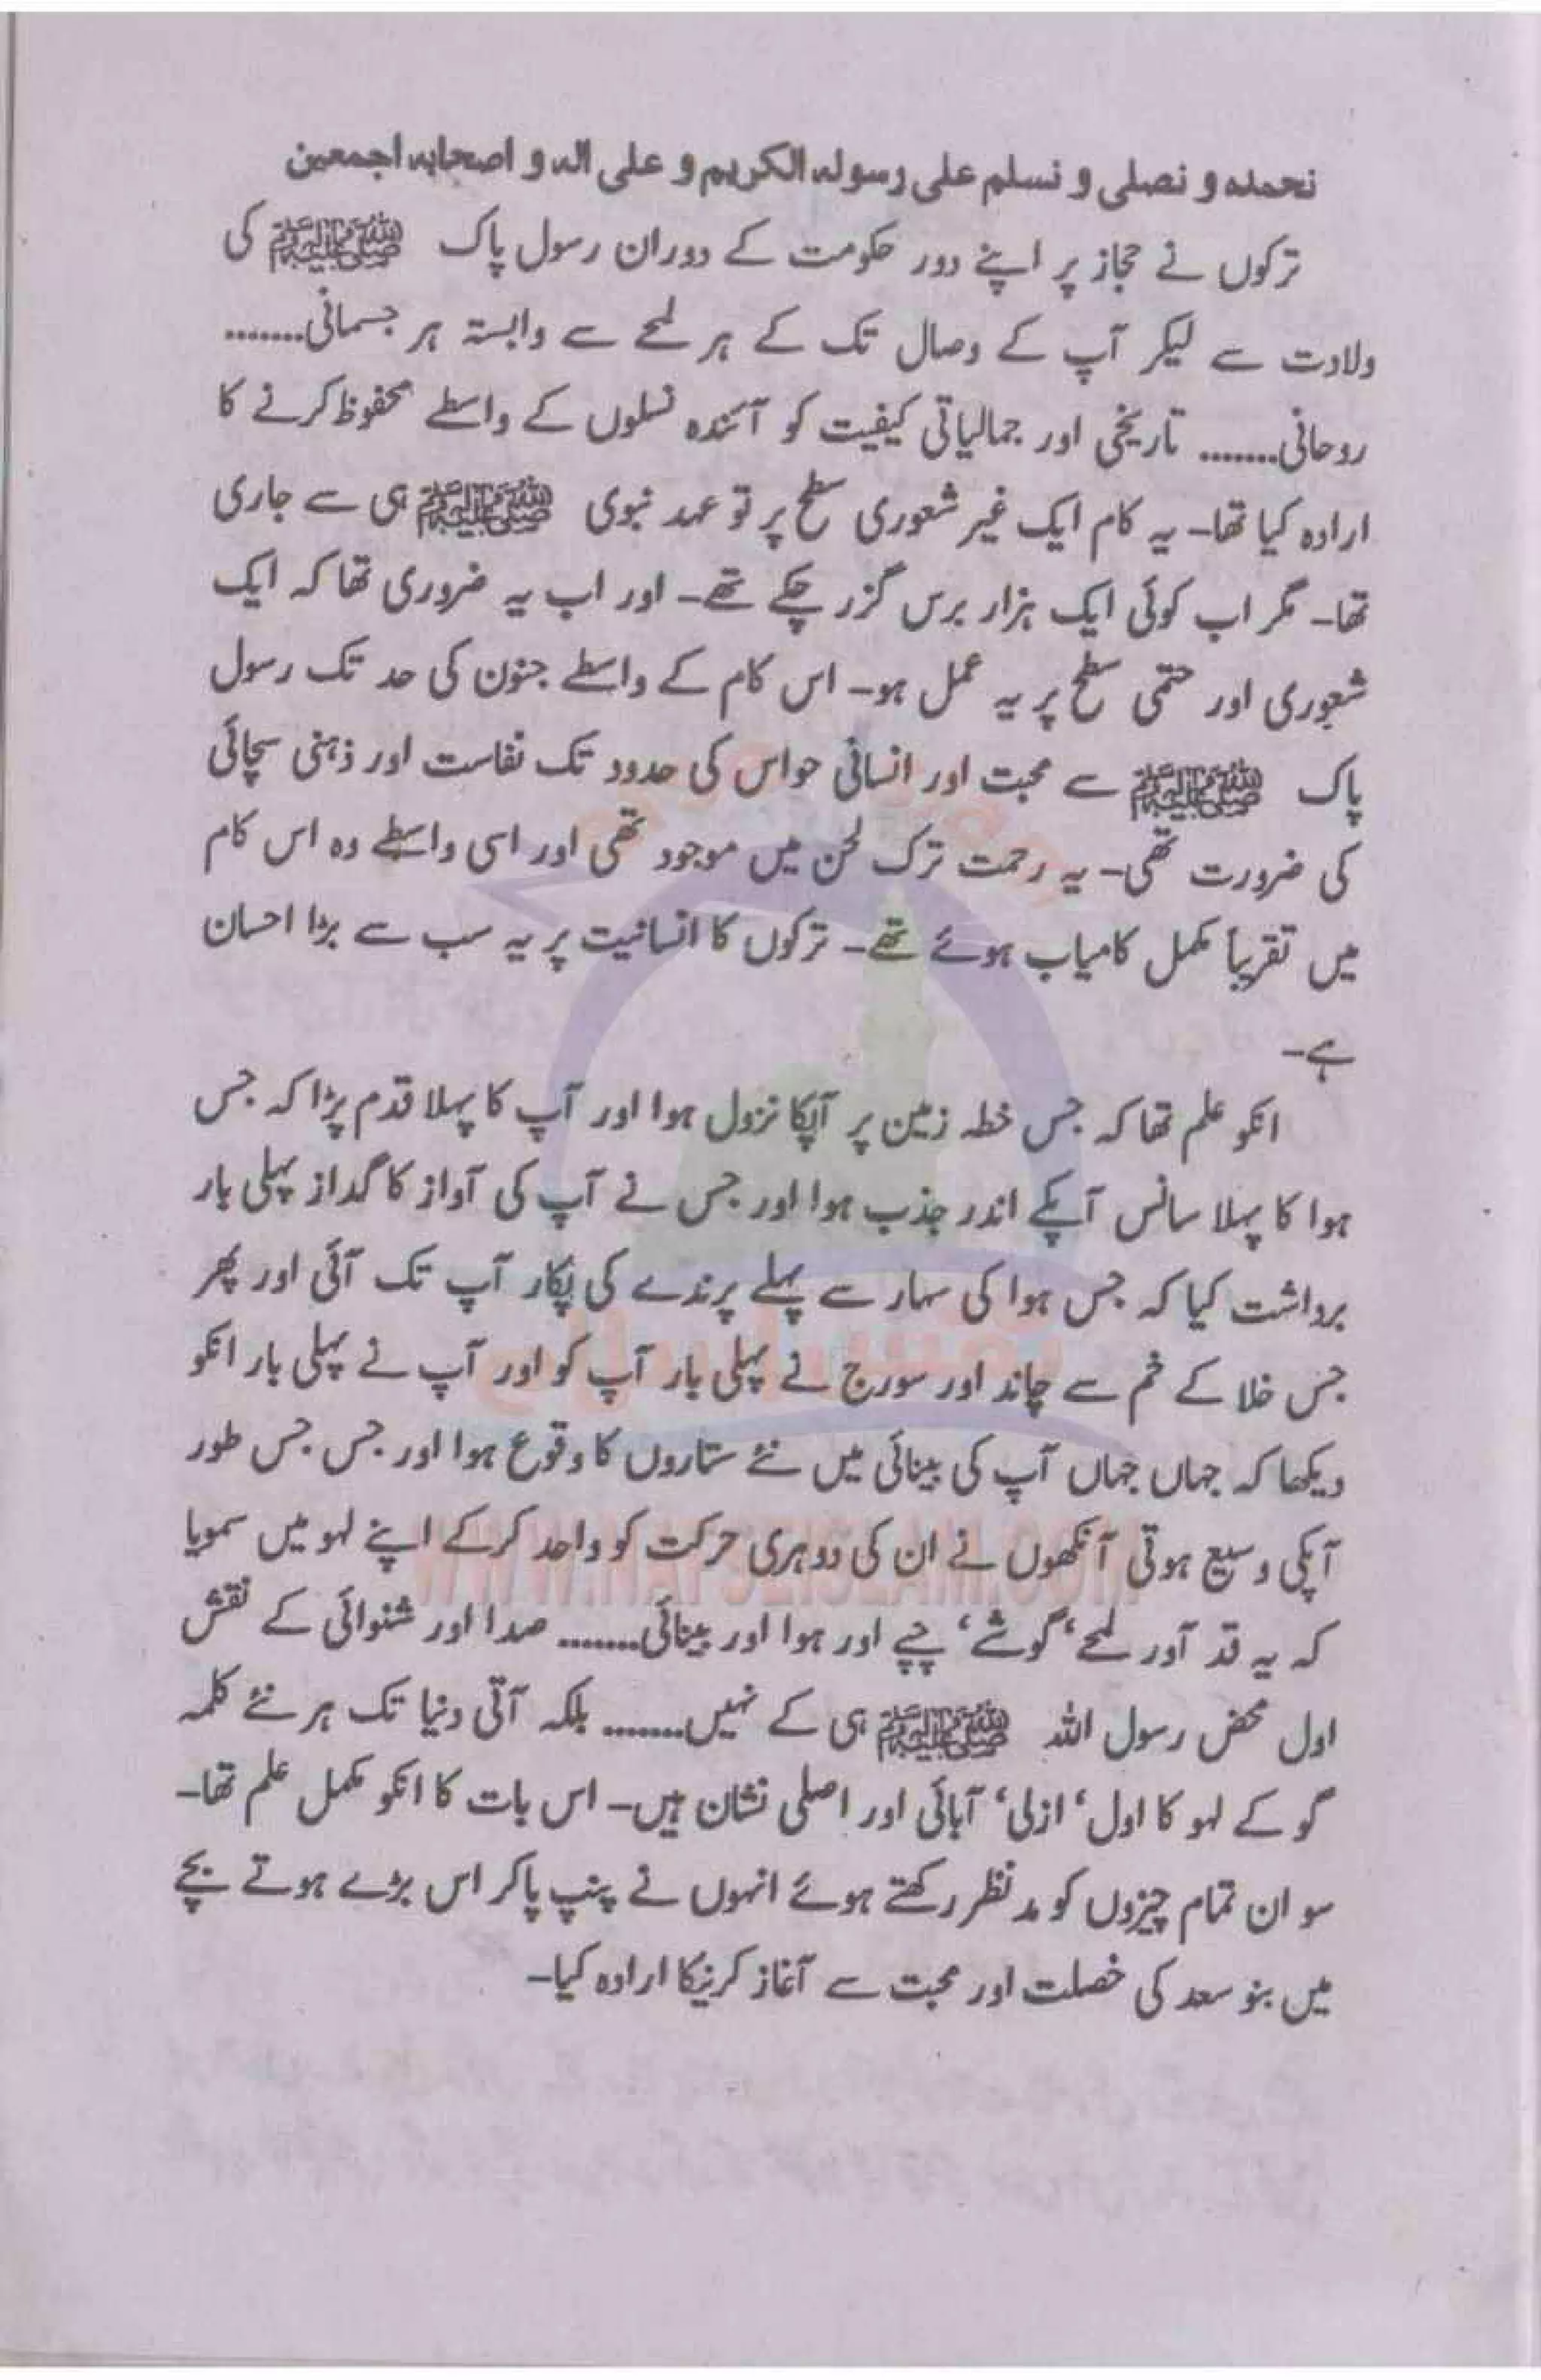 نحمدہ و نصلی و نسلم علی رسولہ الکریم و علی الہ و اصحابہ اجمعین
ترکوں نے حجاز پر اپنے دور حکومت کے دوران رسول پاک ﷺ کی
ولادت سے لیکر آپ کے وصال تک کے ہر لمحے سے وابستہ ہر جسمانی.......
روحانی....... تاریخی اور جمالیاتی کیفیت کو آئندہ نسلوں کے واسطے محفوظ کرنے کا
ارادہ کیا تھا۔ یہ کام ایک غیر شعوری سطح پر تو عہد نبوی ﷺ ہی سے جاری
تھا۔ مگر اب کوئی ایک ہزار برس گزر چکے تھے۔ اور اب یہ ضروری تھا کہ ایک
شعوری اور حتمی سطح پر یہ عمل ہو۔ اس کام کے واسطے جنون کی حد تک رسول
پاک ﷺ سے محبت اور انسانی حواس کی حدود تک نفاست اور ذہنی سچائی
کی ضرورت تھی۔ یہ رحمت ترک لحن میں موجود تھی اور اسی واسطے وہ اس کام
میں تقریباً مکمل کامیاب ہوئے تھے۔ ترکوں کا انسانیت پر یہ سب سے بڑا احسان
ہے۔
انکو علم تھا کہ جس خطہ زمین پر آپکا نزول ہوا اور آپ کا پہلا قدم پڑا کہ جس
ہوا کا پہلا سانس آپکے اندر جذب ہوا اور جس نے آپ کی آواز کا گداز پہلی بار
برداشت کیا کہ جس ہوا کی سہار سے پہلے پرندے کی پکار آپ تک آئی اور پھر
جس خلا کے خم سے چاند اور سورج نے پہلی بار آپ کو اور آپ نے پہلی بار انکو
دیکھا کہ جہاں جہاں آپ کی بینائی میں نئے ستاروں کا وقوع ہوا اور جس جس طور
آپکی وسیع ہوتی آنکھوں نے ان کی دوہری حرکت کو واحد کر کے اپنے لہو میں سمویا
کہ یہ قد آور لمحے‘ گوشے‘ چپے اور ہوا اور بینائی....... صدا اور شنوائی کے نقش
اول محض رسول اللہ ﷺ ہی کے نہیں....... بلکہ آتی دنیا تک ہر نئے کلمہ
گو کے لہو کا اول‘ ازلی‘ آبائی اور اصلی نشان ہیں۔ اس بات کا انکو مکمل علم تھا۔
سو ان تمام چیزوں کو مدنظر رکھتے ہوئے انہوں نے پنپ پا کر اس بڑے ہوتے بچے
میں بنو سعد کی خصلت اور محبت سے آغاز کرنیکا ارادہ کیا۔
نفس اسلام
WWW.NAFSEISLAM.COM